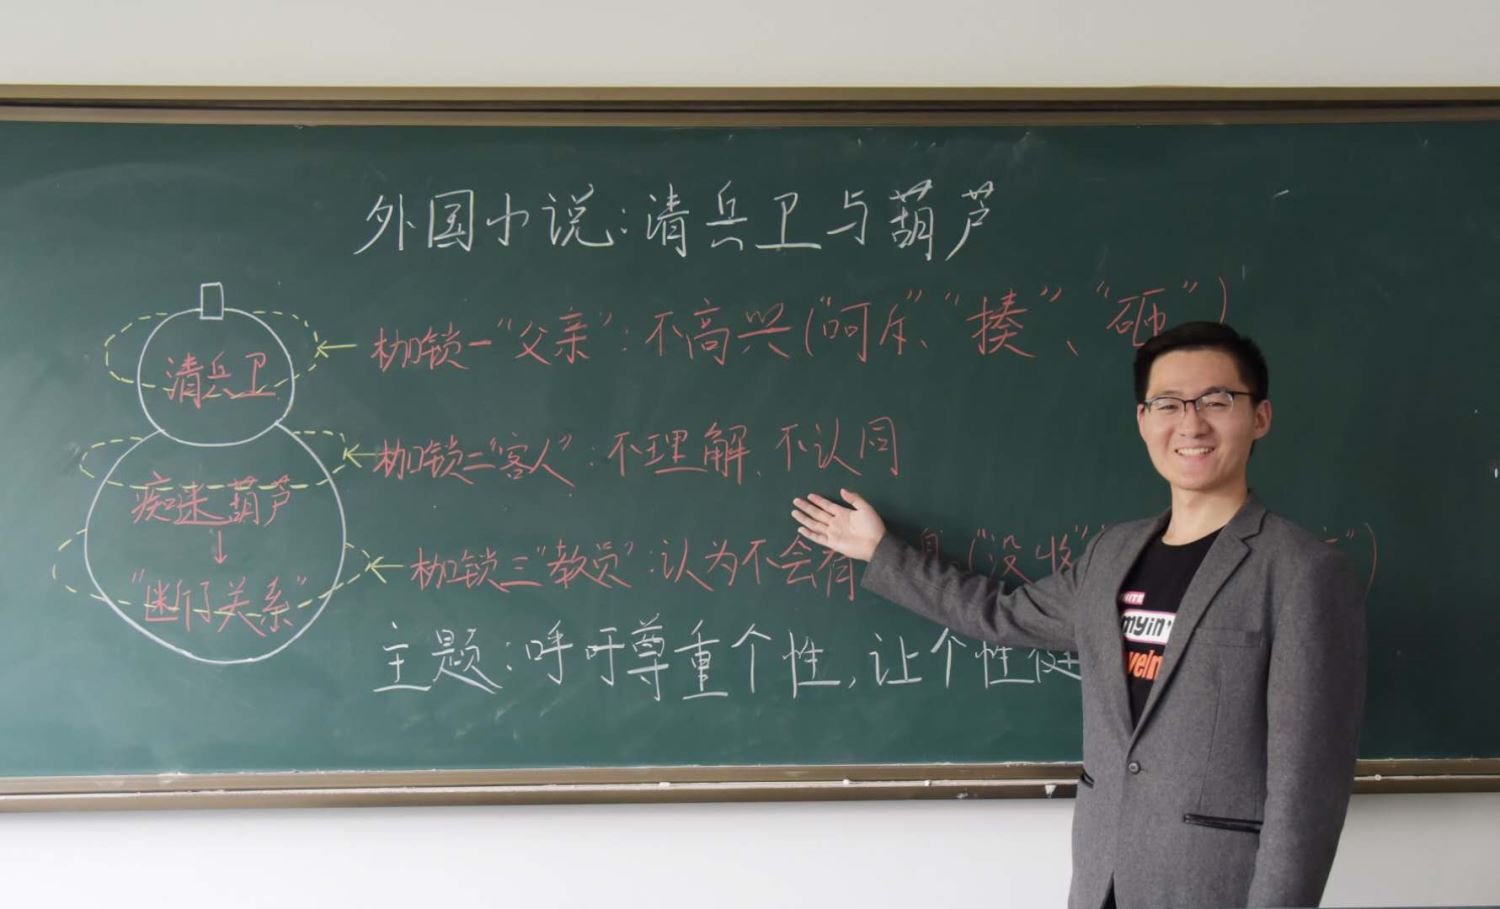 外国小说:清兵卫与葫芦
清兵卫
痴迷葫芦
↓
"断了关系"
←枷锁一"父亲":不高兴("呵斥"、"揍"、"砸")
←枷锁二"客人":不理解、不认同
←枷锁三"教员":认为不会有 息("没收"
主题:呼吁尊重个性,让个性健
myin'